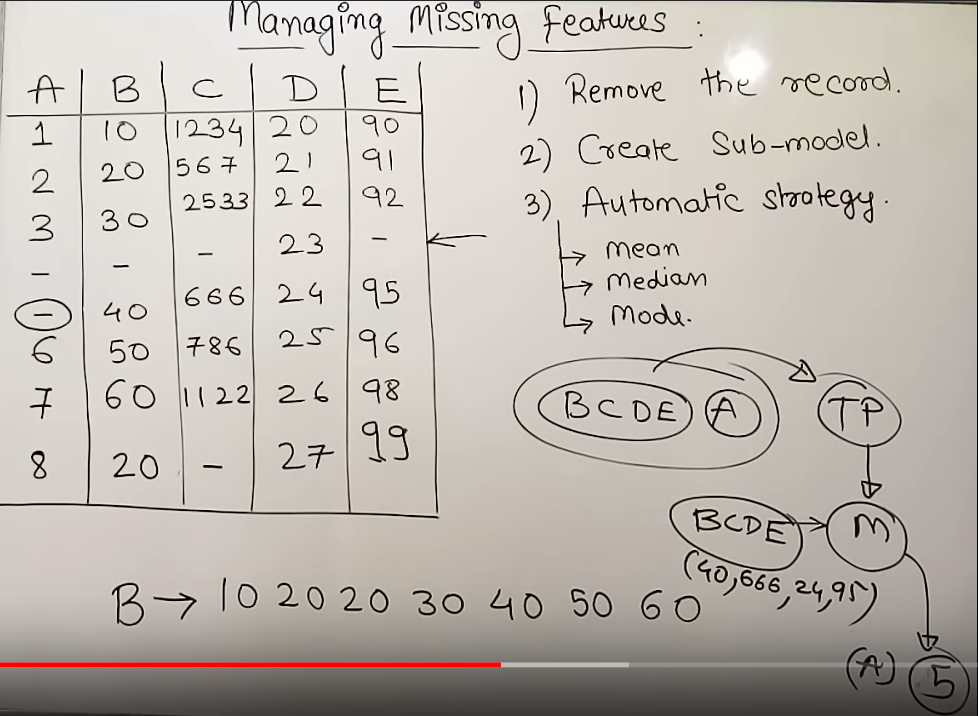 Managing Missing Features :
A B C D E
1 10 1234 20 90
2 20 567 21 91
3 30 2533 22 92
- - - 23 -
- 40 666 24 95
6 50 786 25 96
7 60 1122 26 98
8 20 - 27 99
1) Remove the record.
2) Create Sub-model.
3) Automatic strategy.
→ mean
→ median
→ Mode.
BCDE A
TP
BCDE → M
(40,666,24,95)
B → 10 20 20 30 40 50 60
(A) 5